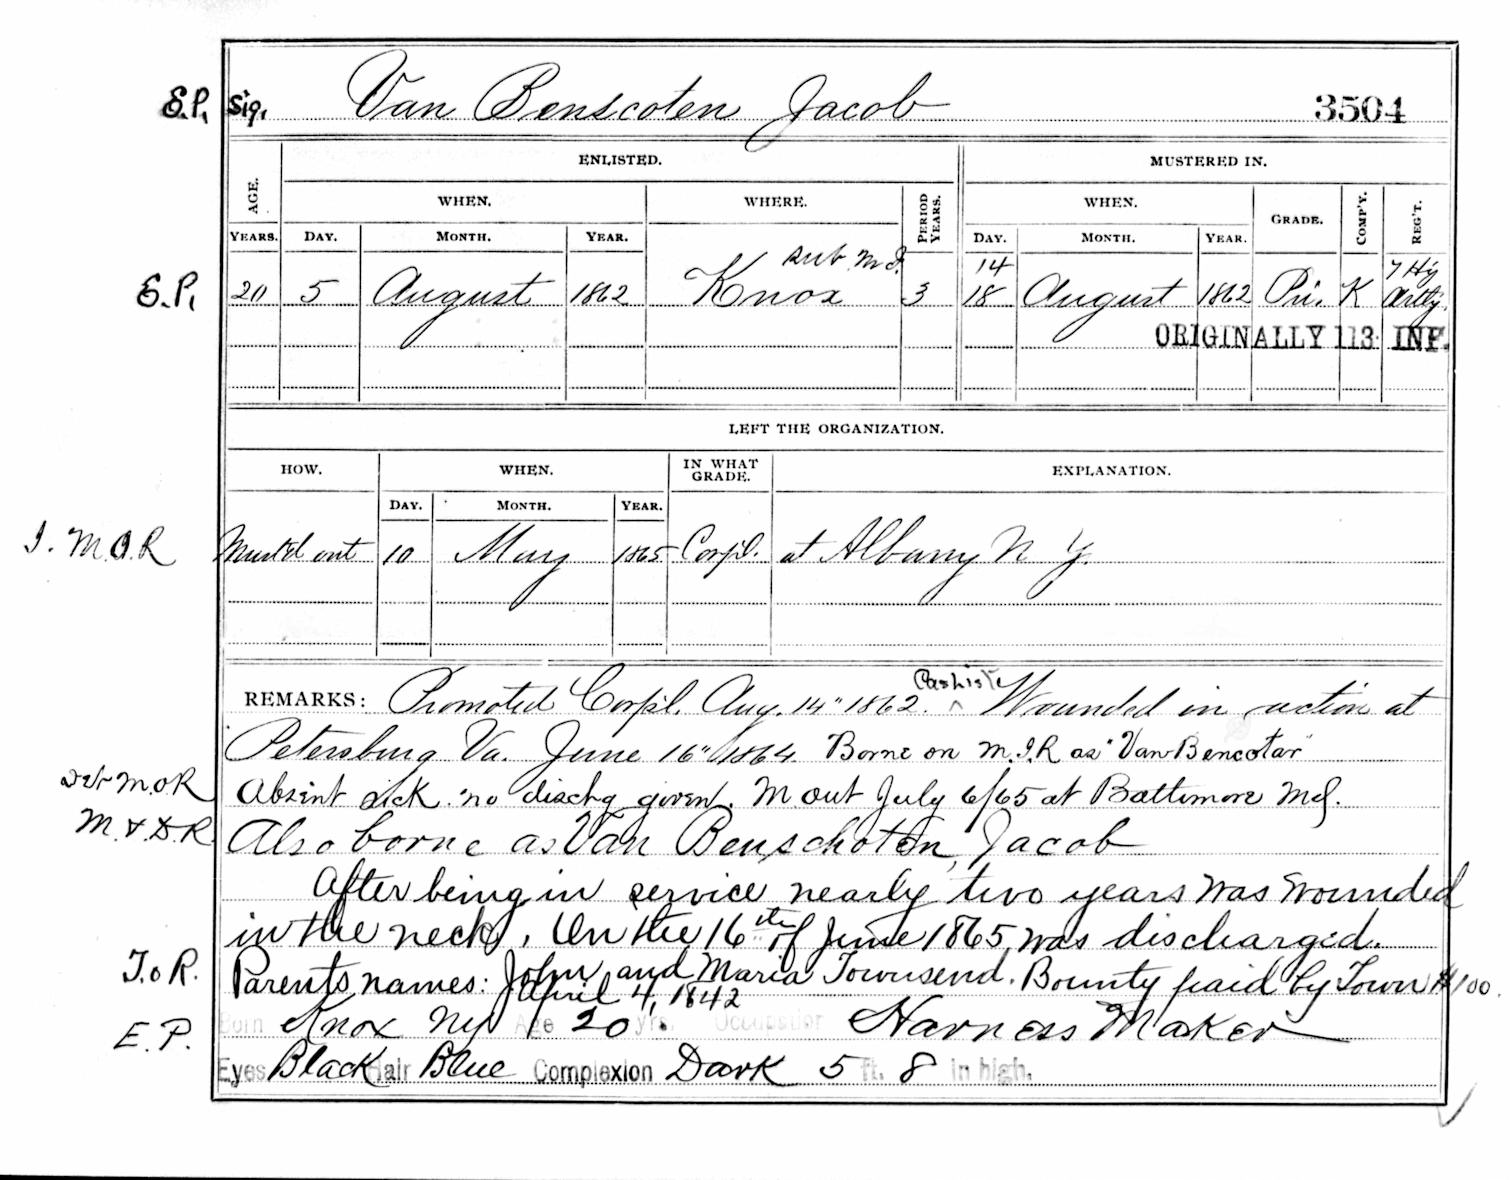 E.P. Sig. Van Benscoten Jacob 3504
ENLISTED. MUSTERED IN.
AGE. WHEN. WHERE. PERIOD YEARS. WHEN. GRADE. COMP'Y. REG'T.
YEARS. DAY. MONTH. YEAR. DAY. MONTH. YEAR.
sub M.I. 14 7 Hy
E.P. 20 5 August 1862 Knox 3 18 August 1862 Pri. K Artly.
ORIGINALLY 113 INF.
LEFT THE ORGANIZATION.
HOW. WHEN. IN WHAT GRADE. EXPLANATION.
DAY. MONTH. YEAR.
I. M.O.R Must'd out 10 May 1865 Corp'l. at Albany N Y.
REMARKS: Promoted Corp'l. Aug. 14" 1862. ^ Wounded in action at
Petersburg Va. June 16" 1864. Borne on M.I.R as "Van Bencotar"
Det M.O.R Absent sick. no dischg given. M out July 6/65 at Baltimore Md.
M. & D.R. Also borne as Van Benschoten, Jacob
After being in service nearly two years was wounded
in the neck, On the 16th of June 1865, was discharged.
T.o R. Parents names: John and Maria Townsend. Bounty paid by Town $100.
April 4, 1842
E.P. Born Knox NY Age 20 yrs. Occupation Harness Maker
Eyes Black Hair Blue Complexion Dark 5 ft. 8 in high.